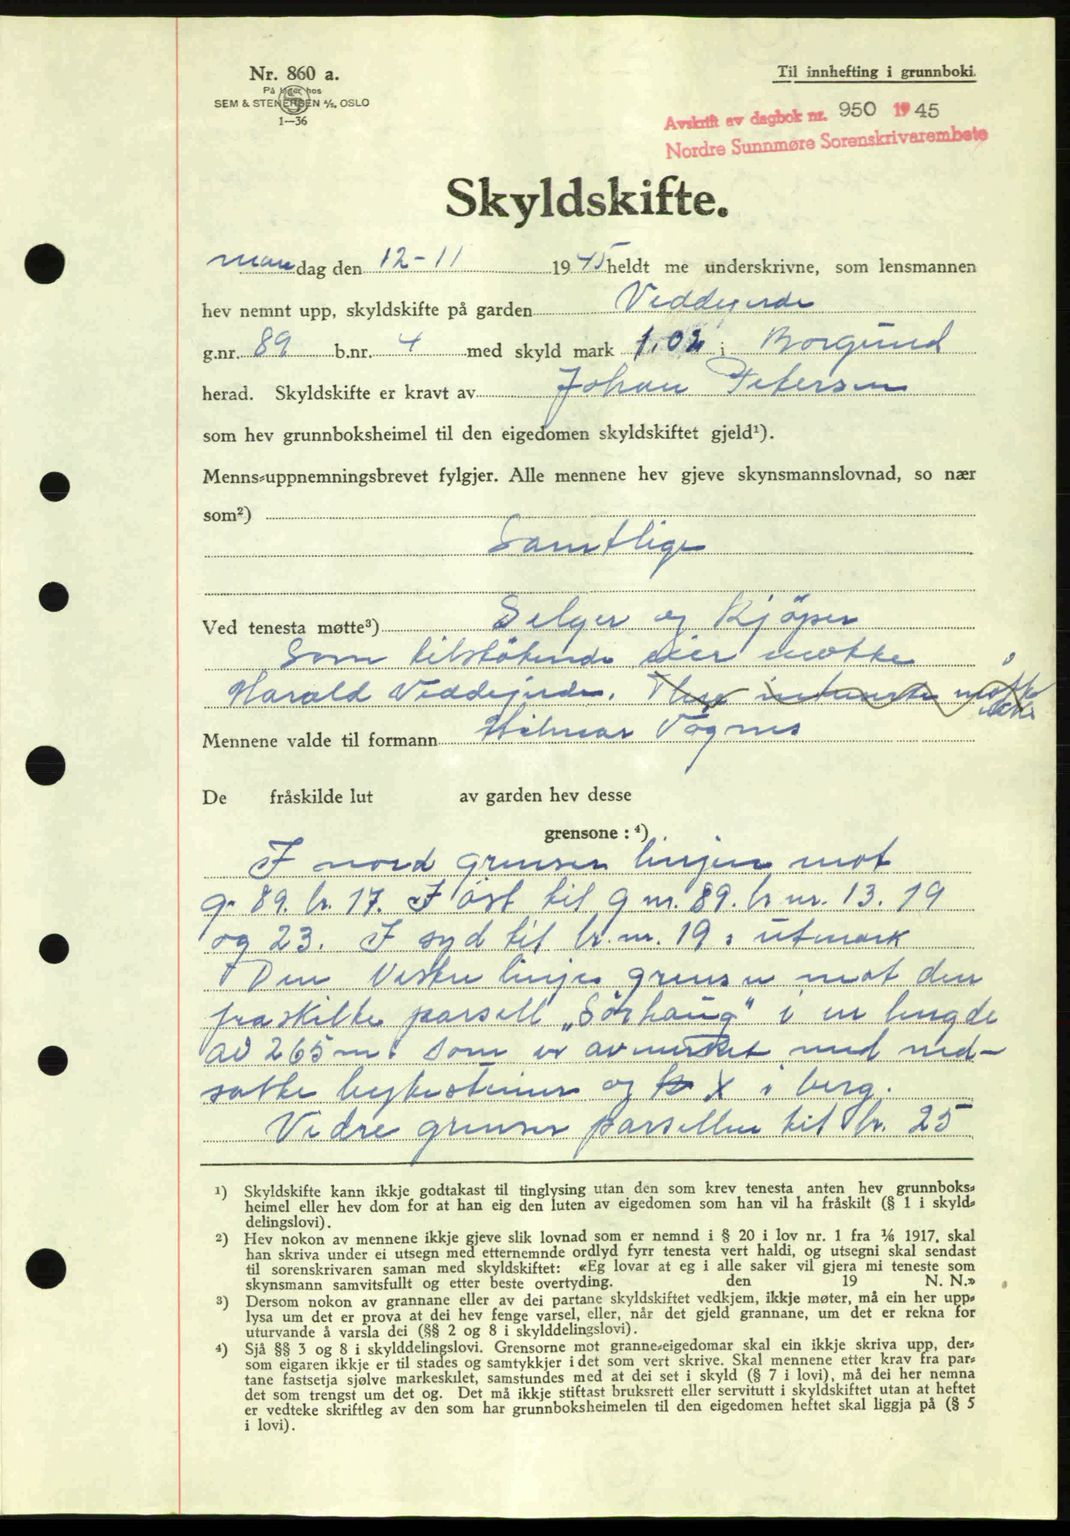 Nr. 860 a.
På lager hos
SEM & STENERSEN A/S, OSLO
1—36
Til innhefting i grunnboki.
Avskrift av dagbok nr. 950 1945
Nordre Sunnmøre Sorenskrivarembete
Skyldskifte.
mandag den 12-11 1945 heldt me underskrivne, som lensmannen
hev nemnt upp, skyldskifte på garden Veddegjerde
g.nr. 89 b.nr. 4 med skyld mark 1.02 i Borgund
herad. Skyldskifte er kravt av Johan Petersen
som hev grunnboksheimel til den eigedomen skyldskiftet gjeld¹).
Menns-uppnemningsbrevet fylgjer. Alle mennene hev gjeve skynsmannslovnad, so nær
som²)
Samtlige
Ved tenesta møtte³) Selger og Kjöper
Som tilstötende eier møtte
Harald Veddegjerde. møtte
ikke
Mennene valde til formann Hilmar Vågnes
De fråskilde lut av garden hev desse
grensone :⁴)
I nord grenser linjen mot
g. 89. br. 17. I öst til g nr. 89. br nr. 13. 19
og 23. I syd til br. nr. 19 : utmark
Den Vestre linje grenser mot den
fraskilte parsell „Sörhaug" i en lengde
av 265 m. som er avmerket med ned-
satte bytesteiner og X i berg.
Videre grenser parsellen til br. 25
¹) Skyldskifte kann ikkje godtakast til tinglysing utan den som krev tenesta anten hev grunnboks-
heimel eller hev dom for at han eig den luten av eigedomen som han vil ha fråskilt (§ 1 i skyld-
delingslovi).
²) Hev nokon av mennene ikkje gjeve slik lovnad som er nemnd i § 20 i lov nr. 1 fra 1/6 1917, skal
han skriva under ei utsegn med etternemnde ordlyd fyrr tenesta vert haldi, og utsegni skal sendast
til sorenskrivaren saman med skyldskiftet: «Eg lovar at eg i alle saker vil gjera mi teneste som
skynsmann samvitsfullt og etter beste overtyding. den 19 N. N.»
³) Dersom nokon av grannane eller av dei partane skyldskiftet vedkjem, ikkje møter, må ein her upp-
lysa um det er prova at dei hev fenge varsel, eller, når det gjeld grannane, um det er rekna for
uturvande å varsla dei (§§ 2 og 8 i skylddelingslovi).
⁴) Sjå §§ 3 og 8 i skylddelingslovi. Grensorne mot granne-eigedomar skal ein ikkje skriva upp, der-
som eigaren ikkje er til stades og samtykkjer i det som vert skrive. Skal mennene etter krav fra par-
tane fastsetja sjølve markeskilet, samstundes med at dei set i skyld (§ 7 i lovi), må dei her nemna
det som trengst um det og. Det må ikkje stiftast bruksrett eller servitutt i skyldskiftet utan at heftet
er vedteke skriftleg av den som har grunnboksheimelen til den eigedomen heftet skal liggja på (§ 5
i lovi).